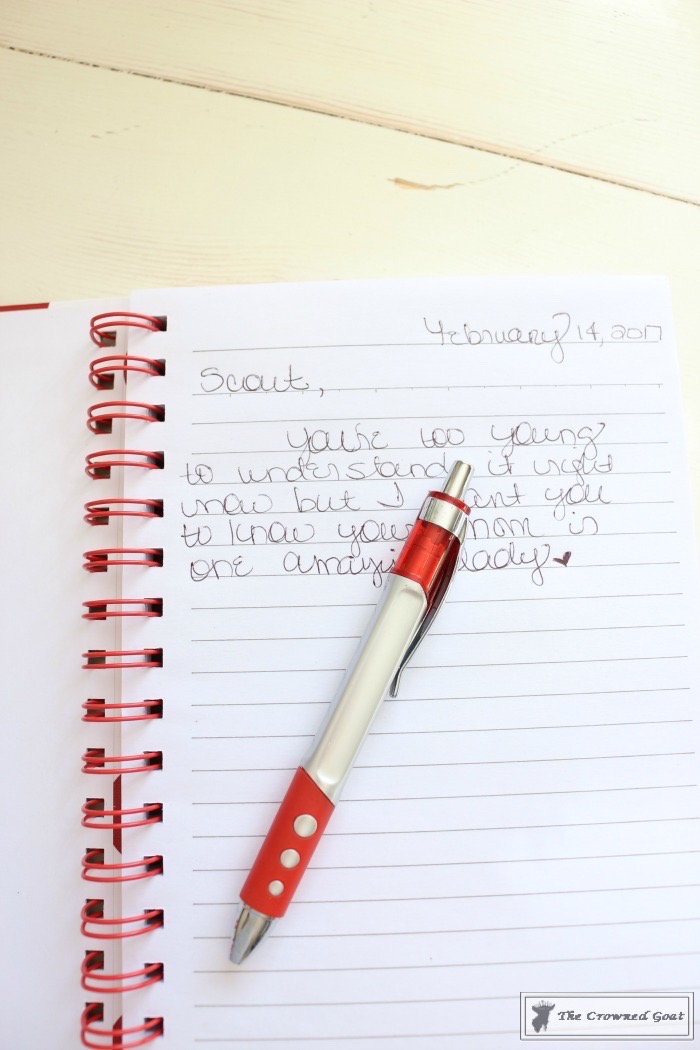 February 14, 2017
Scout,
You're too young
to understand it right
now but I want you
to know your mom is
one amazing lady ♥
The Crowned Goat